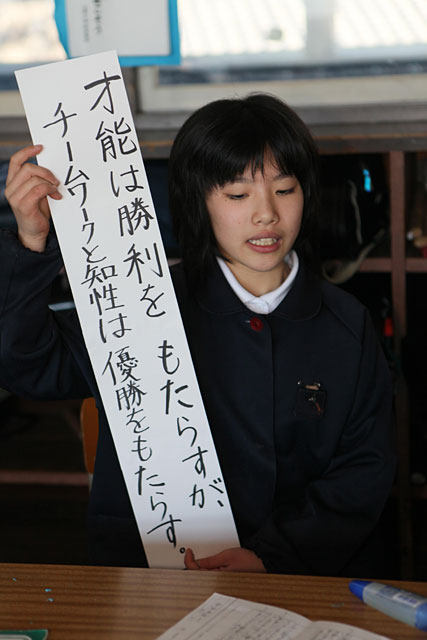 才能は勝利をもたらすが、
チームワークと知性は優勝をもたらす。